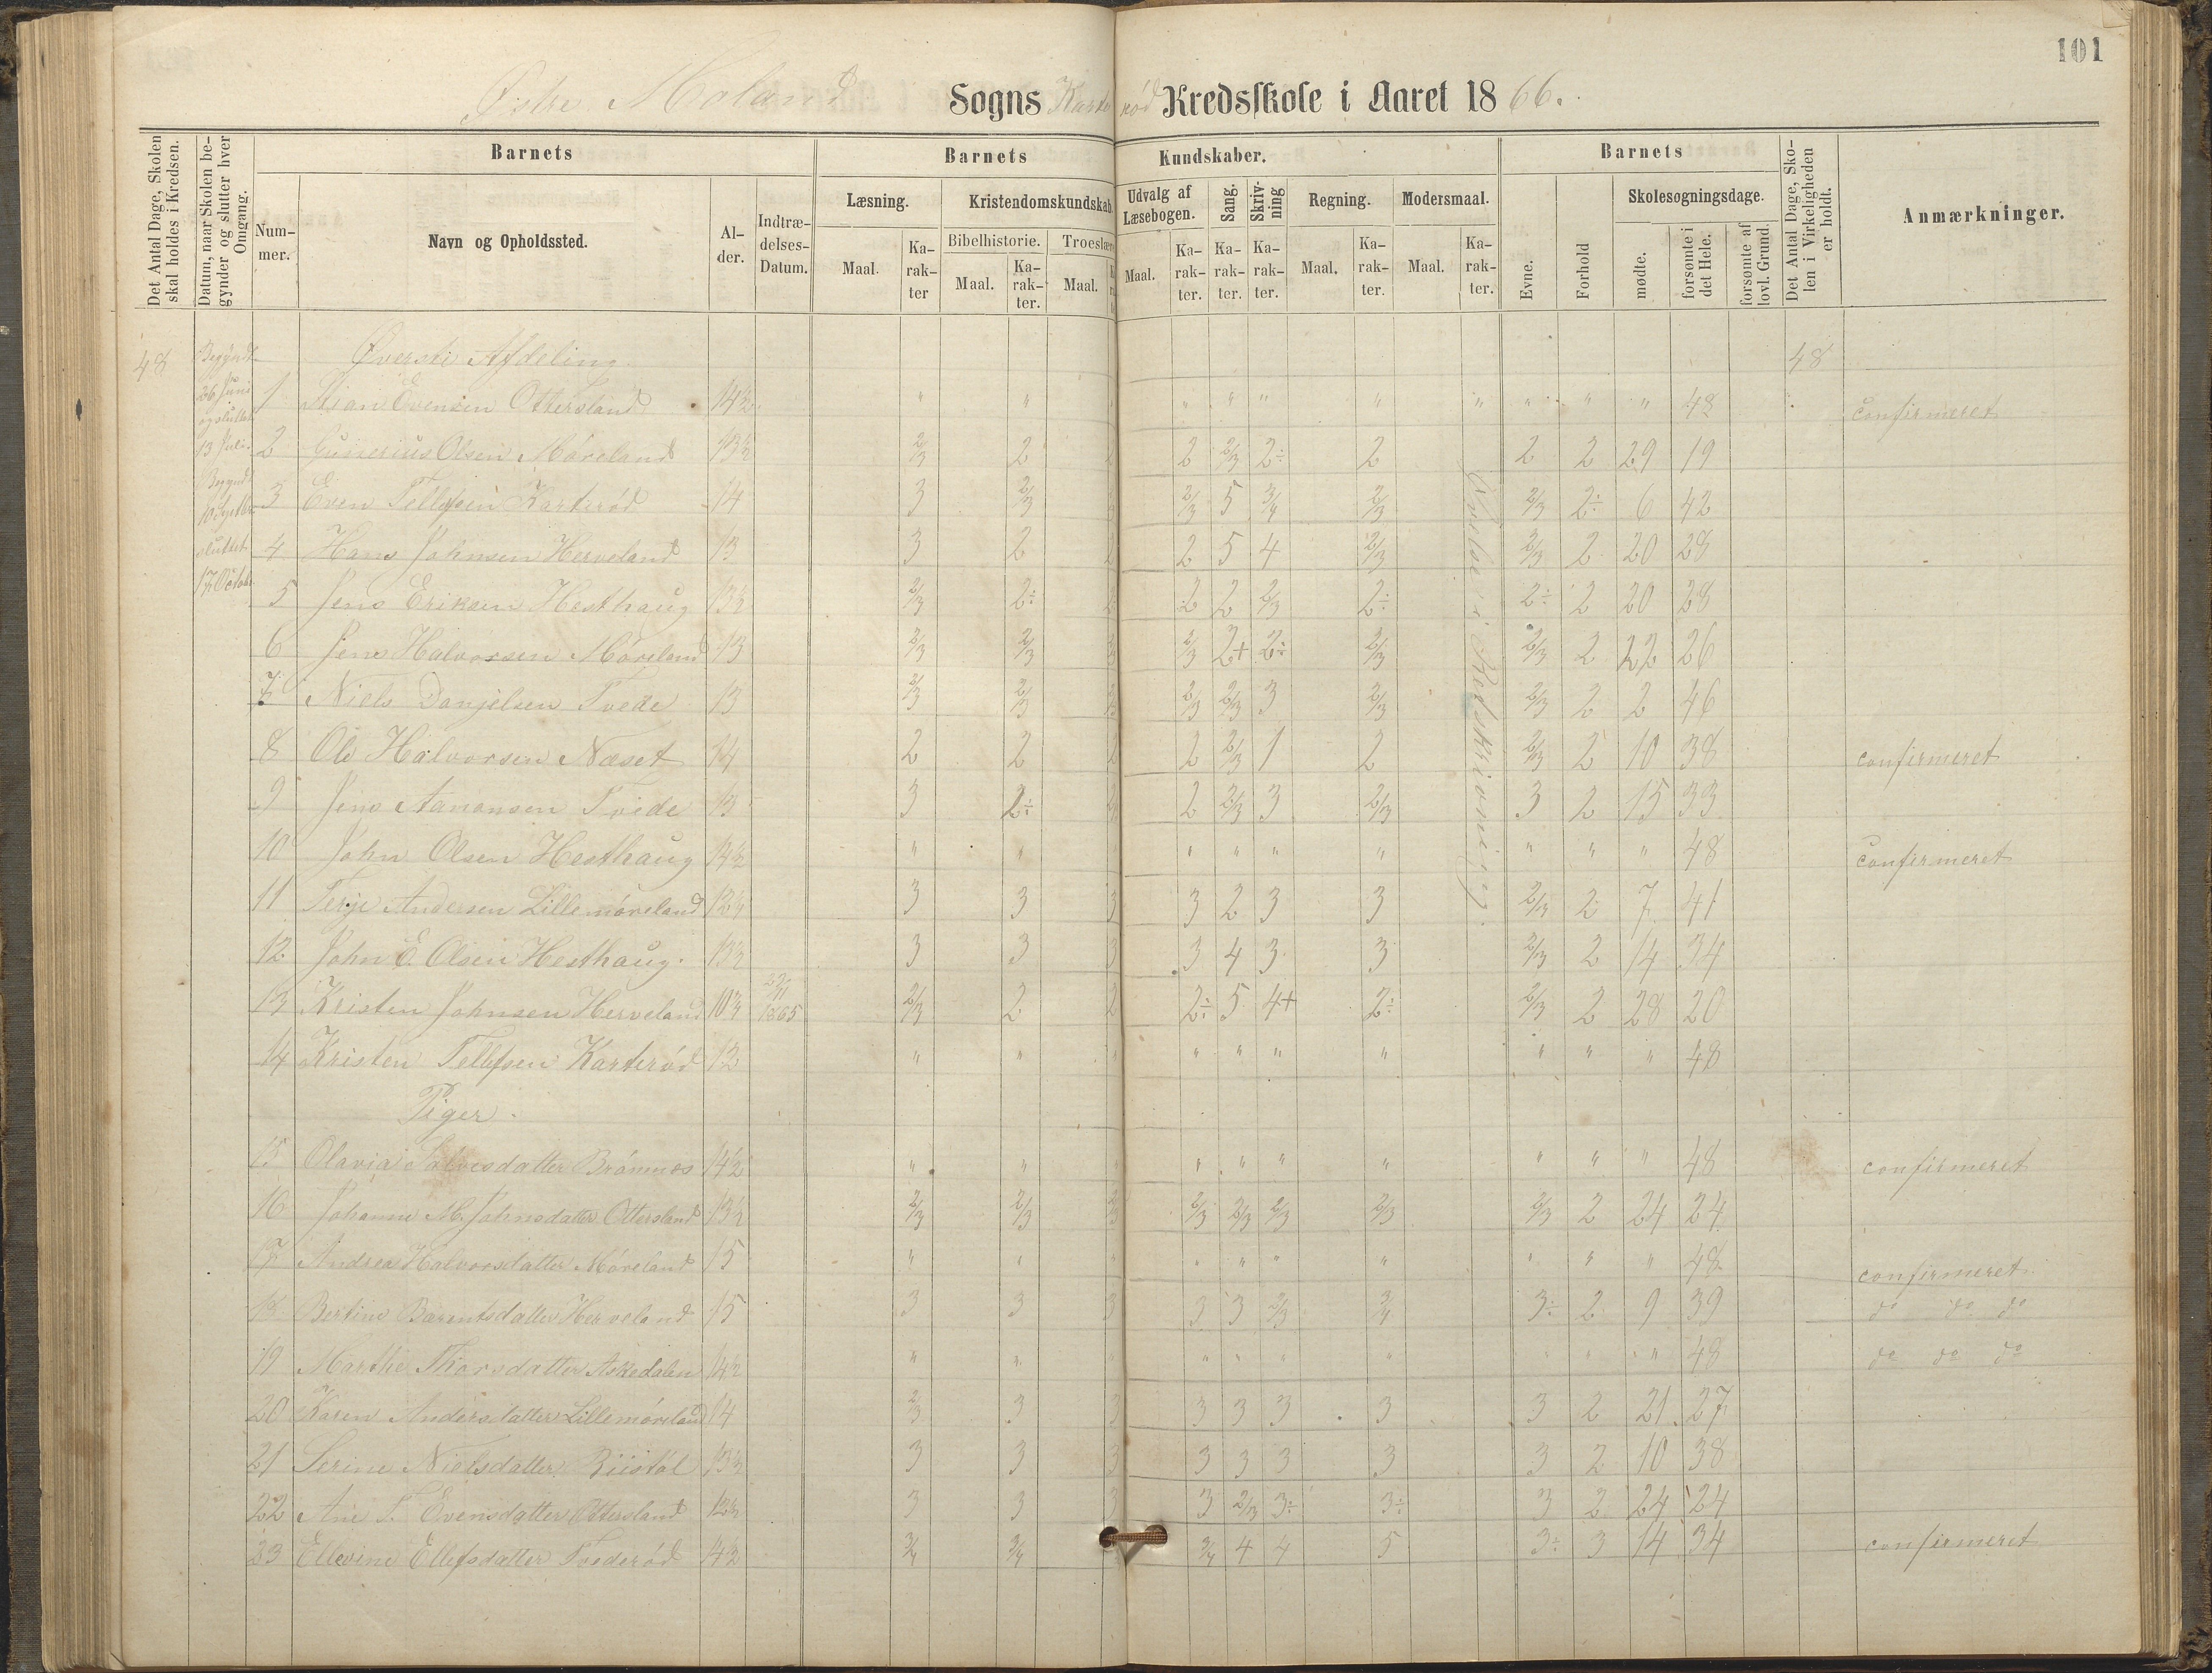 101
Østre Moland Sogns Karterød Kredsskole i Aaret 1866.
Det Antal Dage, Skolen skal holdes i Kredsen.
Datum, naar Skolen begynder og slutter hver Omgang.
Barnets
Nummer.
Navn og Opholdssted.
Alder.
Indtrædelses-Datum.
Barnets Kundskaber.
Læsning.
Maal. Karakter
Kristendomskundskab.
Bibelhistorie.
Maal. Karakter.
Troeslære
Maal.
Udvalg af Læsebogen.
Maal. Karakter.
Sang.
Karakter.
Skrivning
Karakter.
Regning.
Maal. Karakter.
Modersmaal.
Maal. Karakter.
Barnets
Evne.
Forhold
Skolesøgningsdage.
mødte.
forsømte i det Hele.
forsømte af lovl. Grund.
Det Antal Dage, Skolen i Virkeligheden er holdt.
Anmærkninger.
48 Begyndt Øverste Afdeling. 48
26 Juni og sluttet
13 Juli.
Begyndt
10 Septbr
sluttet
17 October
Øvelse i Retskrivning.
1 Evensen Ottersland 14½ " " " " " " " " " " 48 confirmeret
2 Gunerius Olsen Möreland 13½ 2/3 2 2 2 2/3 2÷ 2 2 2 29 19
3 Even Tellefsen Karterød 14 3 2/3 2/3 5 3/4 2/3 2/3 2÷ 6 42
4 Hans Johnsen Herveland 13 3 2 2 2 5 4 2/3 2/3 2 20 28
5 Jens Eriksen Hesthaug 13½ 2/3 2÷ 2 2 2/3 2÷ 2÷ 2 20 28
6 Jens Halvorsen Möreland 13 2/3 2/3 2/3 2+ 2÷ 2/3 2/3 2 22 26
7 Niels Danjelsen Tvede 13 2/3 2/3 2/3 2/3 3 2/3 2/3 2 2 46
8 Ole Halvorsen Næset 14 2 2 2 2 2/3 1 2 2/3 2 10 38 confirmeret
9 Jens Aanonsen Tvede 13 3 2÷ 2 2/3 3 2/3 3 2 15 33
10 John Olsen Hesthaug 14½ " " " " " " " " " 48 confirmeret
11 Terje Andersen Lillemöreland 3 3 3 3 2 3 3 2/3 2 7 41
12 John E. Olsen Hesthaug 13½ 3 3 3 3 4 3 3 2/3 2 14 34
13 Kristen Johnsen Herveland 1865 2/3 2 2 2÷ 5 4+ 2÷ 2/3 2 28 20
14 Kristen Tellefsen Karterød 13 " " " " " " " " " 48
Piger.
15 Olavia Salvesdatter 14½ " " " " " " " " " 48 confirmeret
16 Johanne M. Johnsdatter Ottersland 13½ 2/3 2/3 2/3 2/3 2/3 2/3 2/3 2/3 2 24 24
17 Andrea Halvorsdatter Möreland 15 " " " " " " " " " 48 confirmeret
18 Bertine Barentsdatter Herveland 15 3 3 3 3 3 2/3 3/4 3÷ 2 9 39 do do do
19 Marthe Thorsdatter Askedalen 14½ " " " " " " " " " 48 do do do
20 Karen Andersdatter Lillemöreland 14 2/3 3 3 3 3 3 3 3 2 21 27
21 Serine Nielsdatter 13½ 3 3 3 3 3 3 3 3 2 10 38
22 Ane T. Evensdatter Ottersland 3 3 3 3 2/3 3÷ 3÷ 3 2 24 24
23 Ellevine Ellefsdatter Tvederød 14½ 3/4 3/4 3/4 4 4 5 3÷ 3 14 34 confirmeret